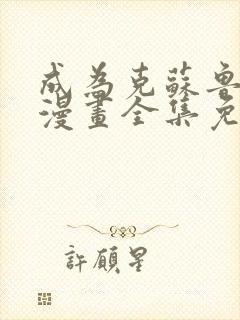 成為克蘇魯
漫畫全集免
許願星